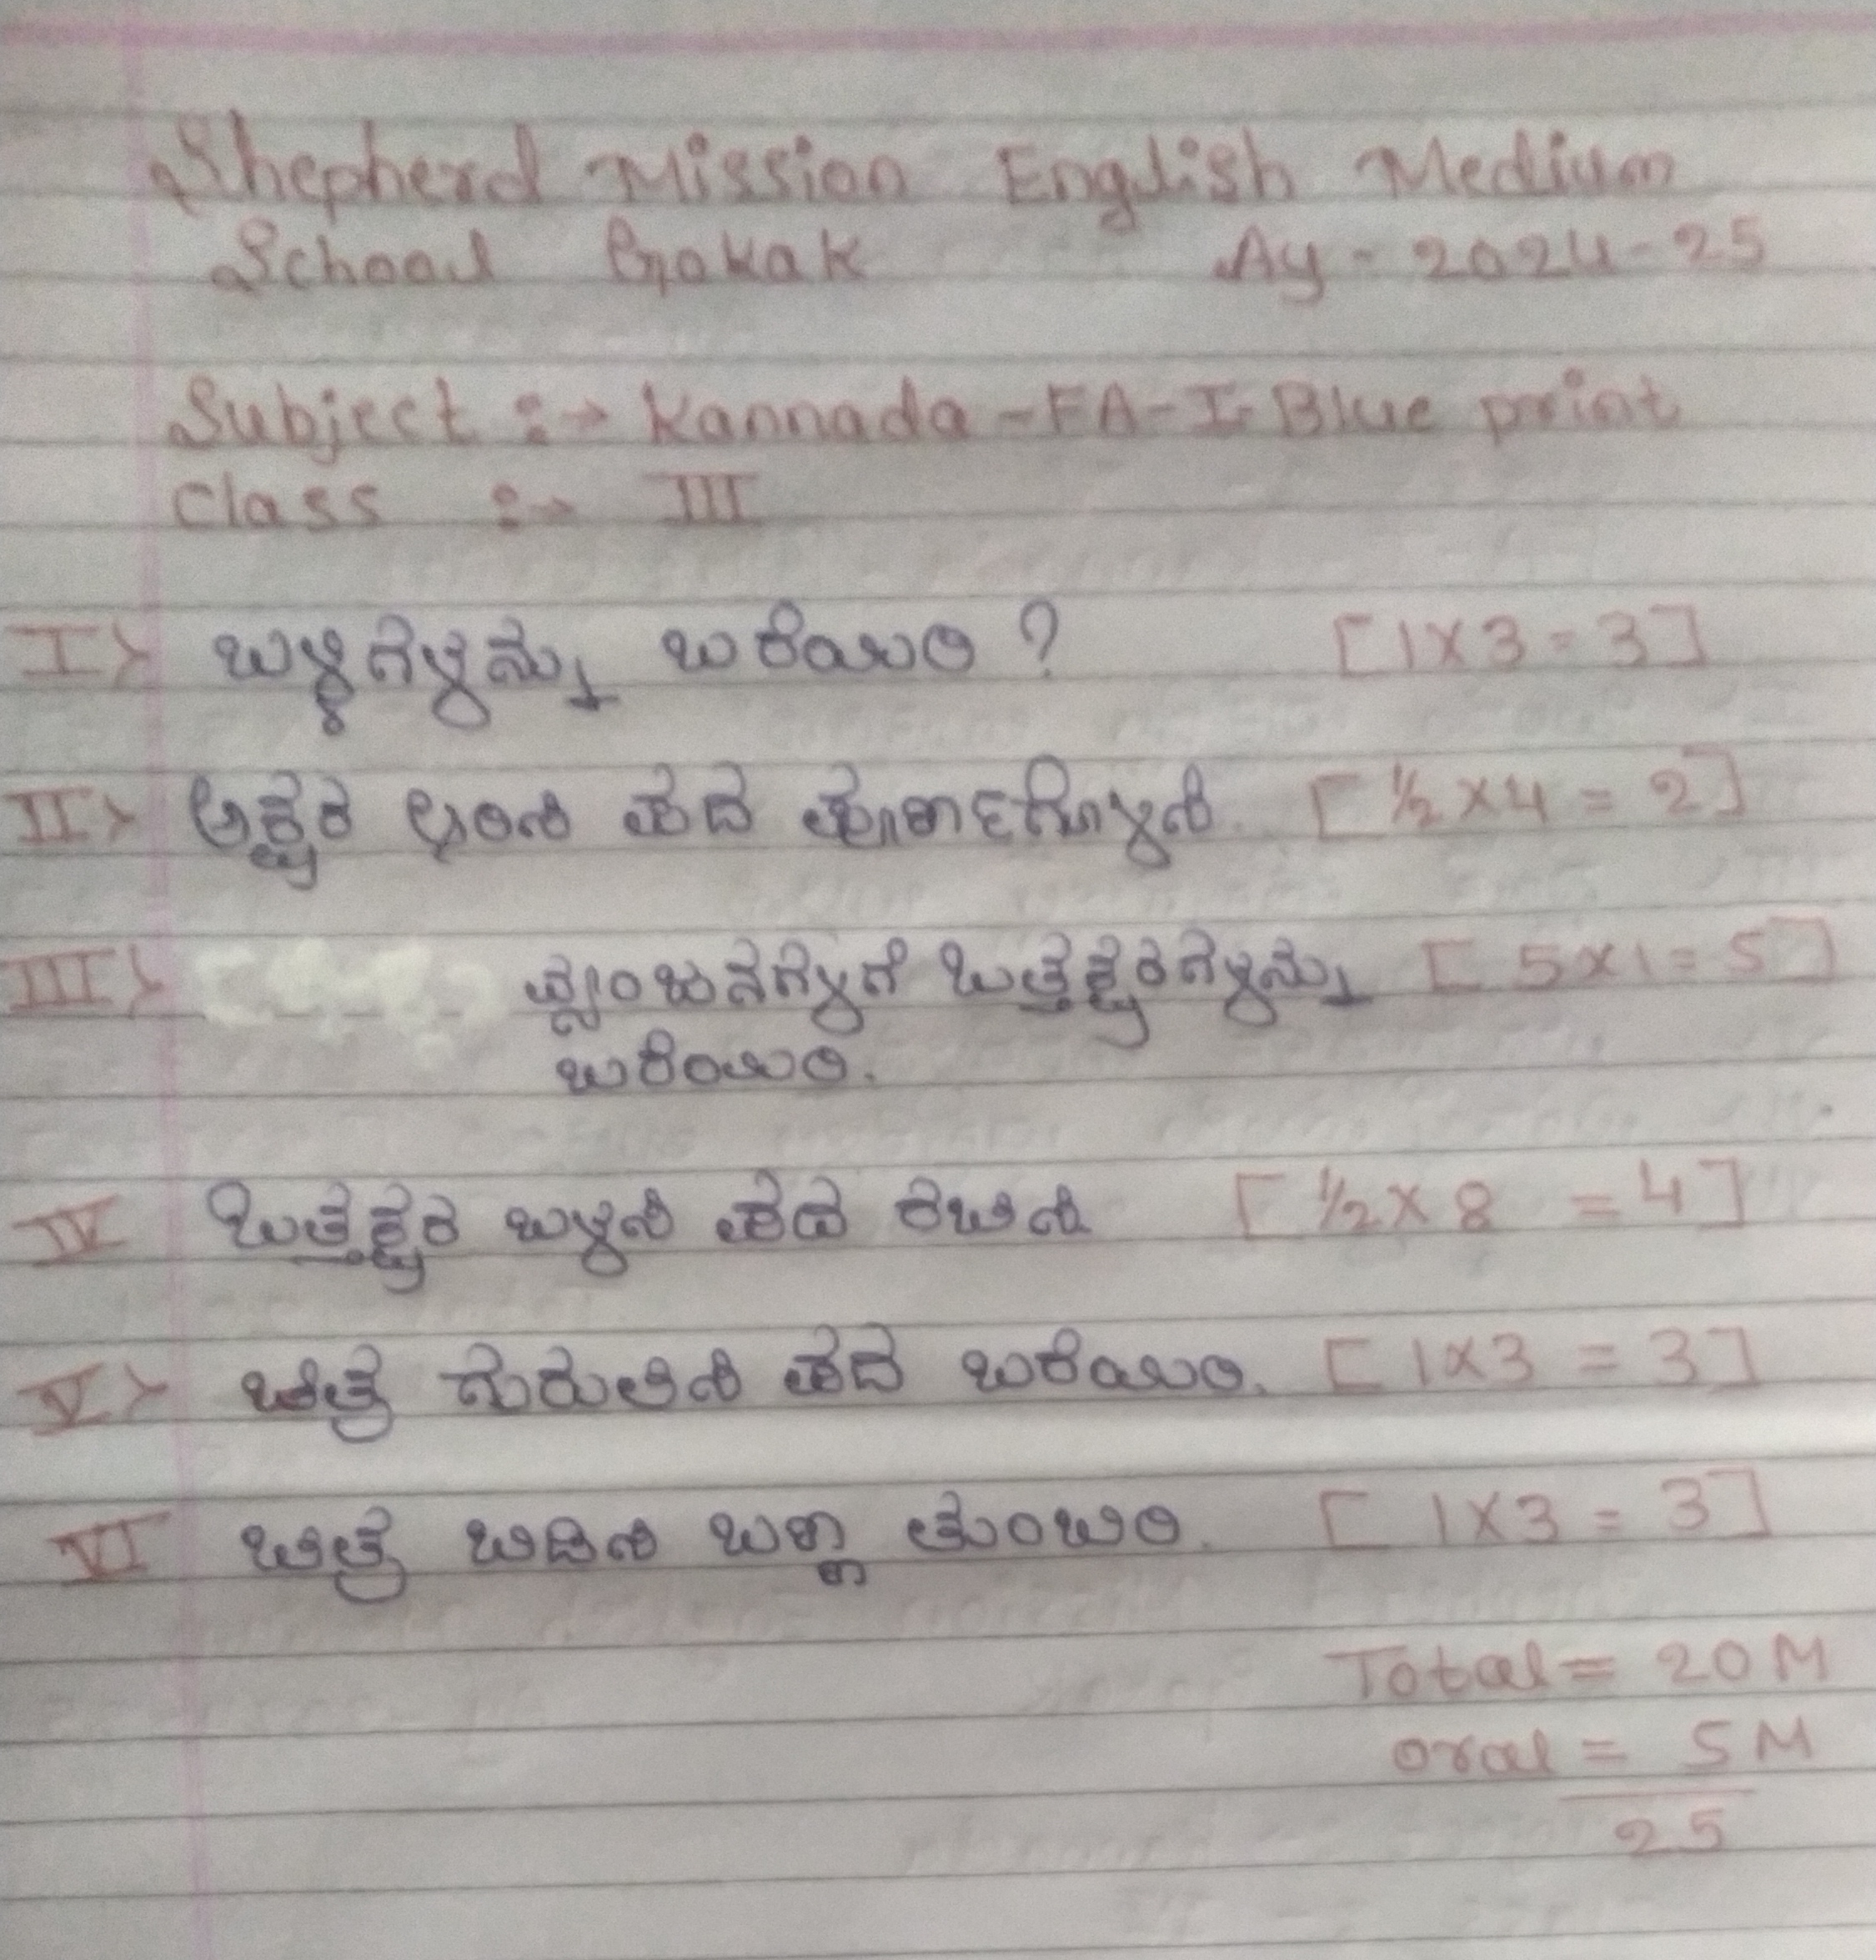 Shepherd Mission English Medium
School Gokak Ay - 2024-25
Subject :→ Kannada -FA-I- Blue print
Class :→ III
I> ಬಳ್ಳಿಗಳನ್ನು ಬರೆಯಿರಿ ? [1×3=3]
II> ಅಕ್ಷರ ಪದ [½×4=2]
III> ವ್ಯಂಜನಗಳಿಗೆ ಒತ್ತಕ್ಷರಗಳನ್ನು [5×1=5]
ಬರೆಯಿರಿ.
IV ಒತ್ತಕ್ಷರ ಬಳಸಿ ಪದ ರಚಿಸಿ [½×8=4]
V> ಚಿತ್ರ ಗುರುತಿಸಿ ಪದ ಬರೆಯಿರಿ. [1×3=3]
VI ಚಿತ್ರ ಬಿಡಿಸಿ ಬಣ್ಣ ತುಂಬಿರಿ. [1×3=3]
Total = 20 M
oral = 5 M
25